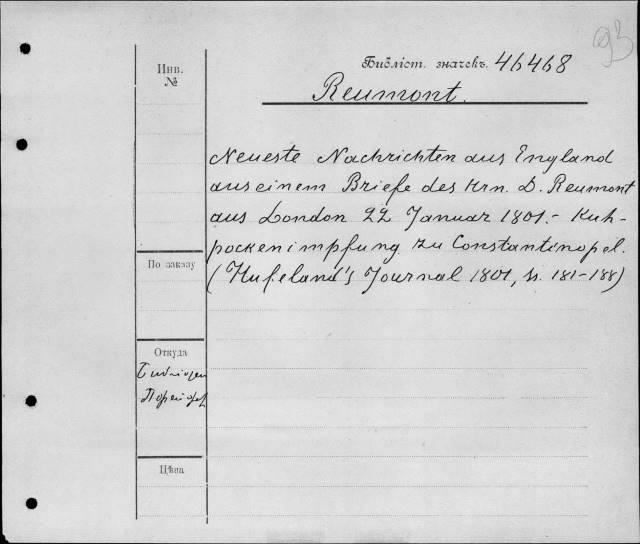 93
Инв. №
Библіот. значекъ 46468
Reumont.
Neueste Nachrichten aus England
aus einem Briefe des Hrn. D. Reumont
aus London 22 Januar 1801.- Kuh-
pockenimpfung zu Constantinopel.
(Hufeland's Journal 1801, S. 181-188)
По заказу
Откуда
Цѣна